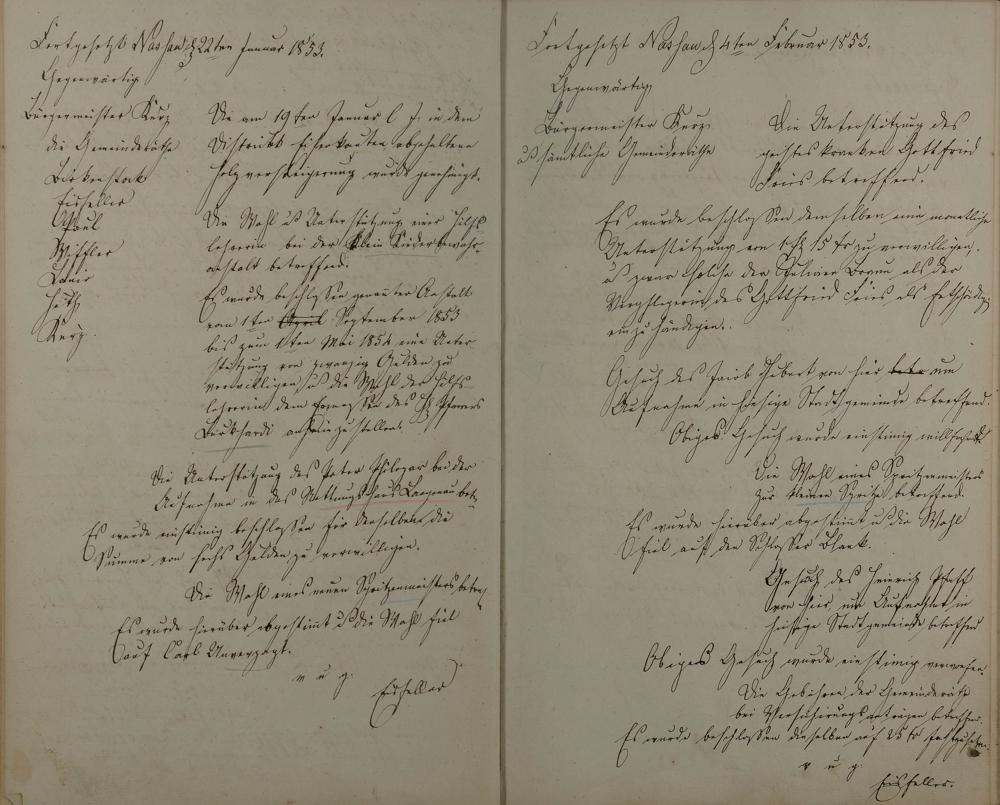 Fortgesetzt Nassau d 22ten Januar 1853.
Gegenwärtig
Bürgermeister Kurz
die Gemeinderäthe
Birkenstock
Eisfeller
Paul
Wiffler
Lanio
Heck
Kurz.
Die am 19ten Januar l. J. in dem
District Eisenkauten abgehaltene
Holzversteigerung wurde genehmigt.
Die Wahl u Unterstützung einer Hilfs
lehrerin bei der Klein Kinderbewahr-
anstalt betreffend.
Es wurde beschlossen genannter Anstalt
vom 1ten April September 1853
bis zum 1ten Mai 1854 eine Unter
stützung von zwanzig Gulden zu
verwilligen, u die Wahl der Hilfs
lehrerin dem Ermessen des H Pfarrers
Burkhardi anheimzustellen.
Die Unterstützung des Peter bei der
Aufnahme in das Rettungshaus Langenau betr.
Es wurde einstimig beschlossen für denselben die
Summe von sechs Gulden zu verwilligen.
Die Wahl eines neuen Spritzenmeisters betreff
Es wurde hierüber abgestimmt u die Wahl fiel
auf Carl Unverzagt.
v u g.
Eisfeller
Fortgesetzt Nassau d 4ten Februar 1853.
Gegenwärtig
Bürgermeister Kurz
u sämtliche Gemeinderäthe
Die Unterstützung des
geisteskranken Gottfried
Fries betreffend.
Es wurde beschlossen demselben eine monatliche
Unterstützung von 1 fl 15 kr zu verwilligen.
u zwar solche der Braun als der
Verpflegerin des Gottfried Fries als Entschädig
einzuhändigen.
Gesuch des Jacob Hebert von hier betr um
Aufnahme in hiesige Stadtgemeinde betreffend.
Obiges Gesuch wurde einstimig willfahrt
Die Wahl eines Spritzenmeisters
zur kleinen Spritze betreffend.
Es wurde hierüber abgestimmt u die Wahl
fiel auf den Schlosser Blank.
Gesuch des Heinrich Pfaff
von hier, um Aufnahme in
hiesige Stadtgemeinde betreffend
Obiges Gesuch wurde einstimig verworfen.
Die Gebühren der Gemeinderäthe
bei betreffend.
Es wurde beschlossen dieselben auf 25 kr festzusetzen.
v u g.
Eisfeller.